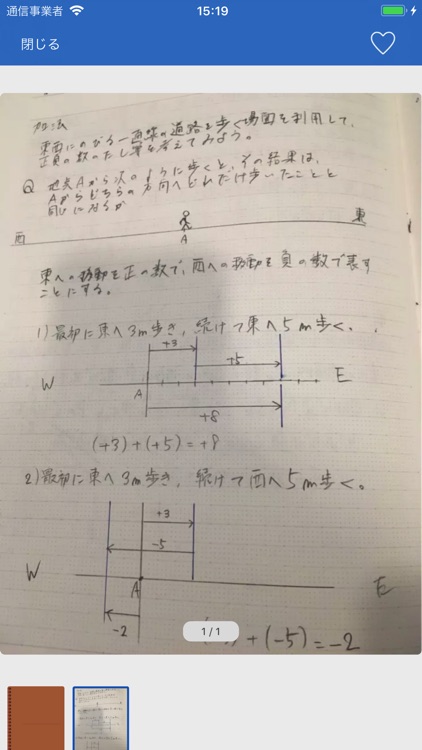 通信事業者
15:19
閉じる
加法
東西にのびる一直線の道路を歩く場面を利用して、
正負の数のたし算を考えてみよう。
Q 地点Aから次のように歩くと、その結果は、
Aからどちらの方向へどれだけ歩いたことと
同じになるか
西 東
A
東への移動を正の数で、西への移動を負の数で表す
ことにする。
1) 最初に東へ3m歩き、続けて東へ5m歩く。
+3
+5
W A E
+8
(+3)+(+5)=+8
2) 最初に東へ3m歩き、続けて西へ5m歩く。
+3
-5
W A E
-2
+(-5)=-2
1/1